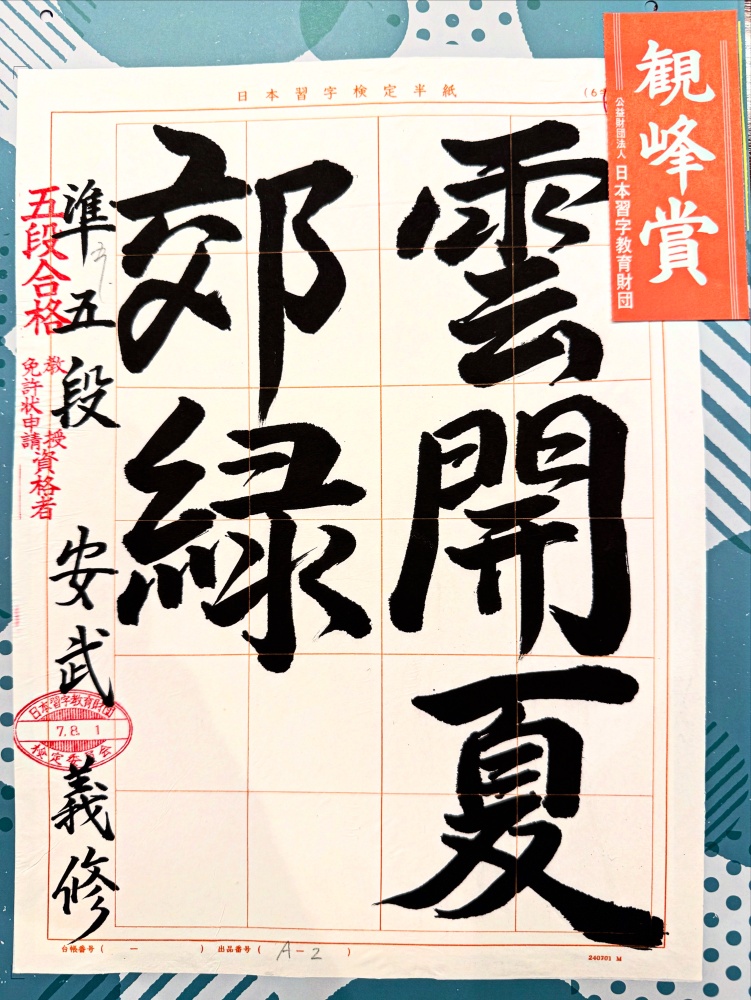 日本習字検定半紙
観峰賞
公益財団法人 日本習字教育財団
雲開夏
郊緑
準五段 安武義修
五段合格
教授資格者
免許状申請
日本習字教育財団
7.8.1
検定委員会
台帳番号( ー )
出品番号( A-2 )
240701 M